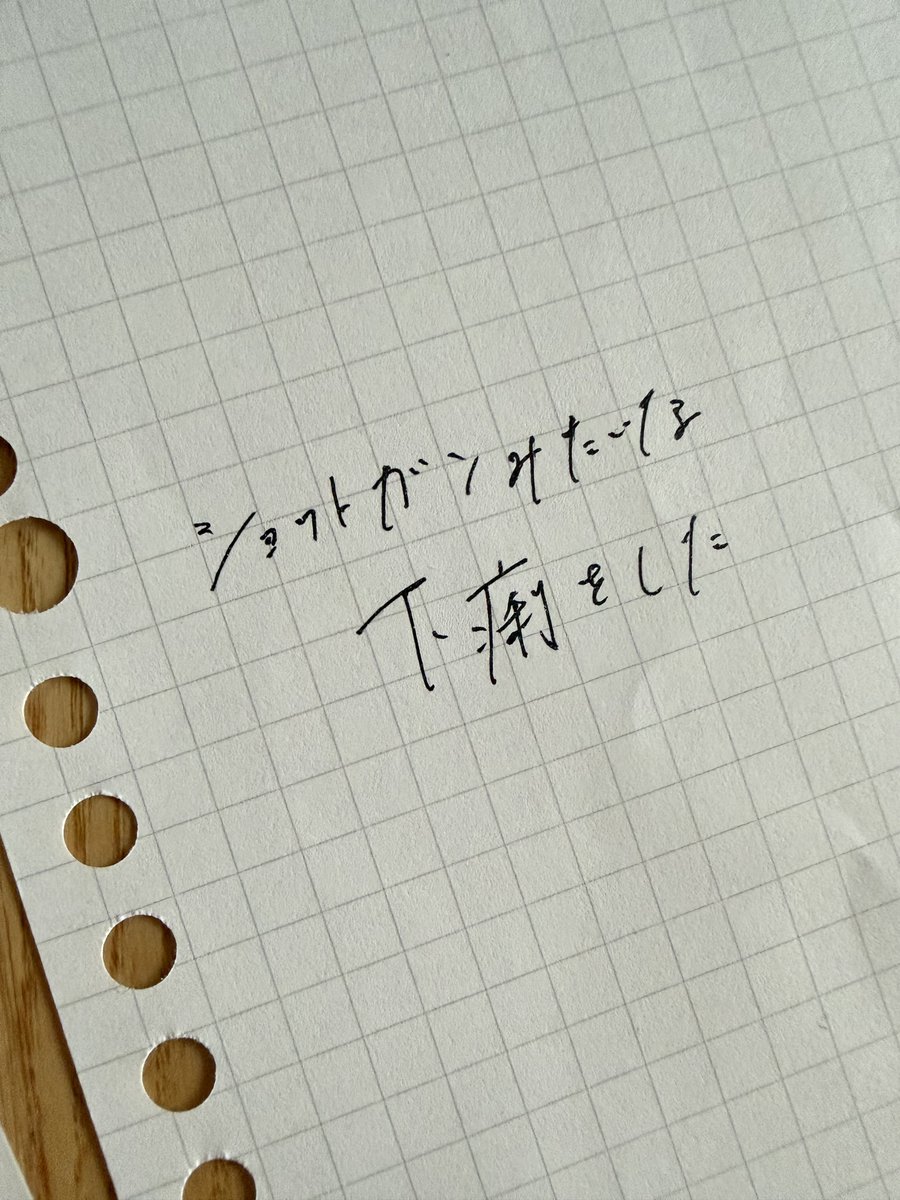 ショットガンみたいな
下痢をした